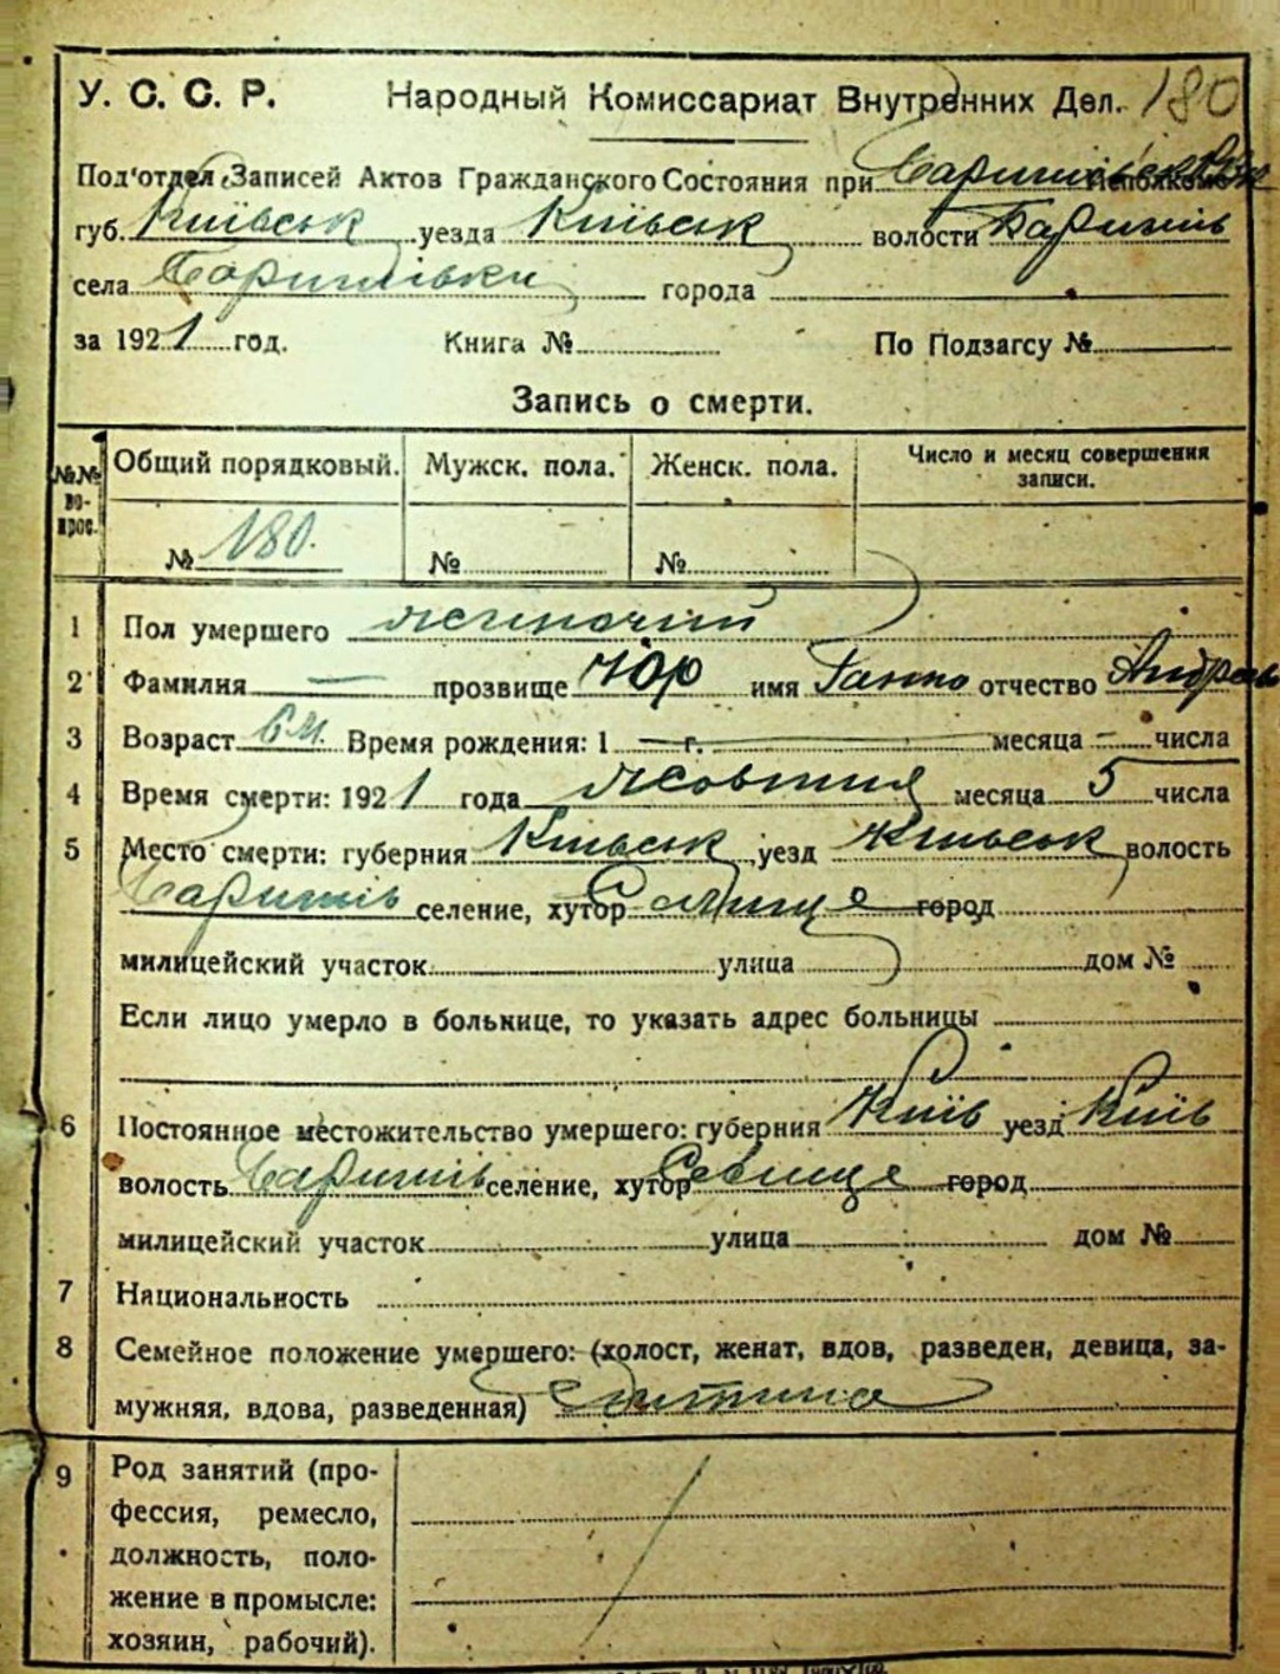 У. С. С. Р. Народный Комиссариат Внутренних Дел. 180
Под'отдел Записей Актов Гражданского Состояния при Исполкоме
губ. Київськ уезда Київськ волости Баришів
села Баришівки города
за 1921 год. Книга № По Подзагсу №
Запись о смерти.
№№ во-прос. Общий порядковый. Мужск. пола. Женск. пола. Число и месяц совершения записи.
№ 180. № №
1 Пол умершего жиночий
2 Фамилия — прозвище имя Ганна отчество
3 Возраст 6 м. Время рождения: 1 — г. месяца — числа
4 Время смерти: 1921 года жовтня месяца 5 числа
5 Место смерти: губерния Київськ уезд Київськ волость
Баришів селение, хутор город
милицейский участок улица дом №
Если лицо умерло в больнице, то указать адрес больницы
6 Постоянное местожительство умершего: губерния Київ уезд Київ
волость Баришів селение, хутор город
милицейский участок улица дом №
7 Национальность
8 Семейное положение умершего: (холост, женат, вдов, разведен, девица, за-
мужняя, вдова, разведенная) дитина
9 Род занятий (про-
фессия, ремесло,
должность, поло-
жение в промысле:
хозяин, рабочий).